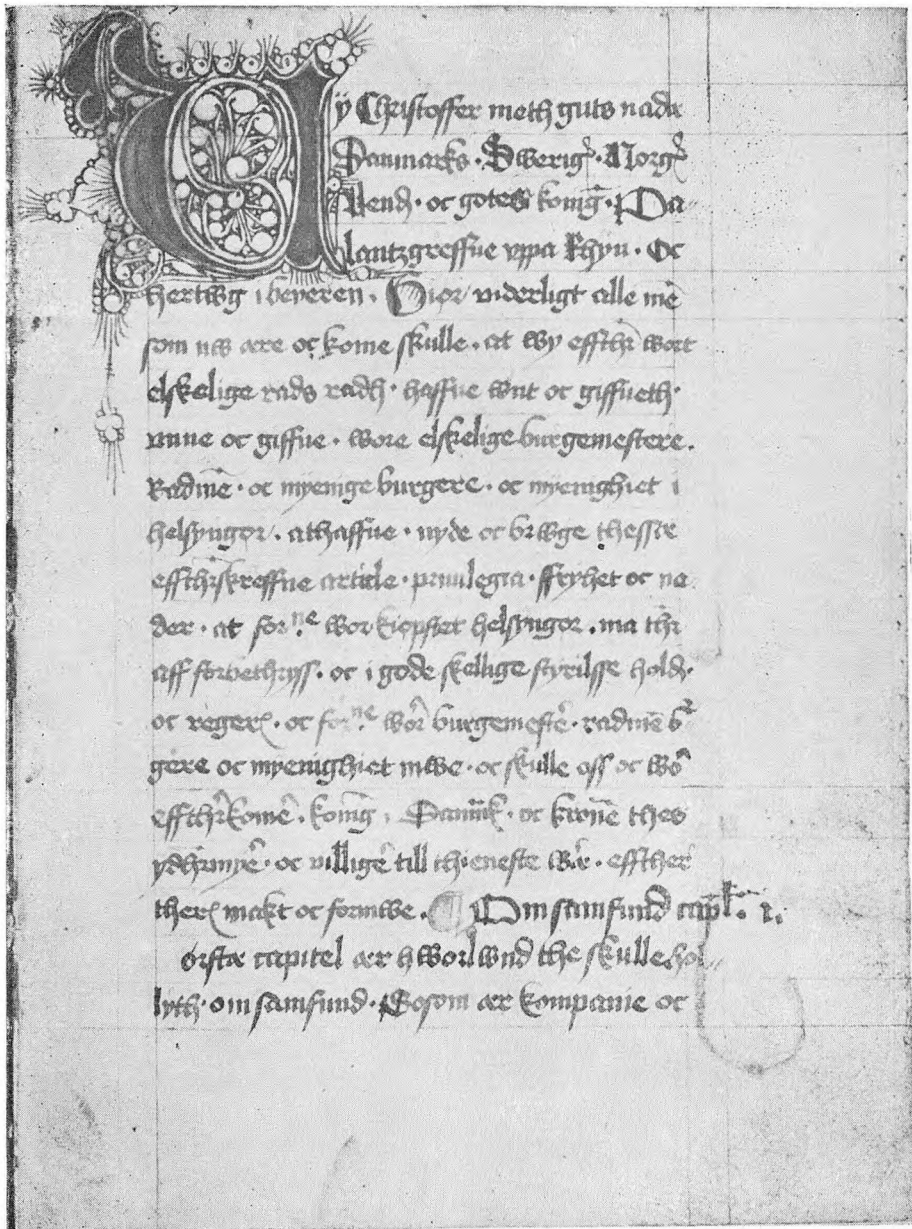 Wÿ Christoffer meth guts nade
Danmarks · Swerigꝭ · Norgꝭ
Vendꝭ · oc gotes koni̅g · Pa
lantzgreffue vppa Rhyn · Oc
hertwg i beyeren · Gior viderligt alle me̅
som nw ære oc kome skulle · at wy effth̅r wort
elskelige rads radh · haffue wnt oc giffueth ·
vnne oc giffue · wore elskelige burgemestere ·
Radme̅ · oc myenige burgere · oc myenighiet i
helsyngor · athaffue · nyde oc brwge thesse
effth̅rskreffne article · priuilegia · ffryhet oc na
der · at forⁿᵉ wor kiopstet helsyngor · ma th̅r
aff forbethryss · oc i gode skellige styrilse holdꝭ ·
oc regerꝭ · oc forⁿᵉ wor̅ burgemeste̅r · radme̅ b̅r
gere oc myenighiet mwe · oc skulle oss oc wo̅r
effth̅rkome̅r · koni̅g i Da̅mk̅ · oc krone̅ thes
ydh̅rmye̅r · oc villige̅r till thieneste wæ̅r · effther
therꝭ makt oc formwe · ¶ Om samfund cap̅l · 1 ·
orste capitel ær hworlwnd the skulle hol
lyth · om samfund · Sosom ær kompanie oc